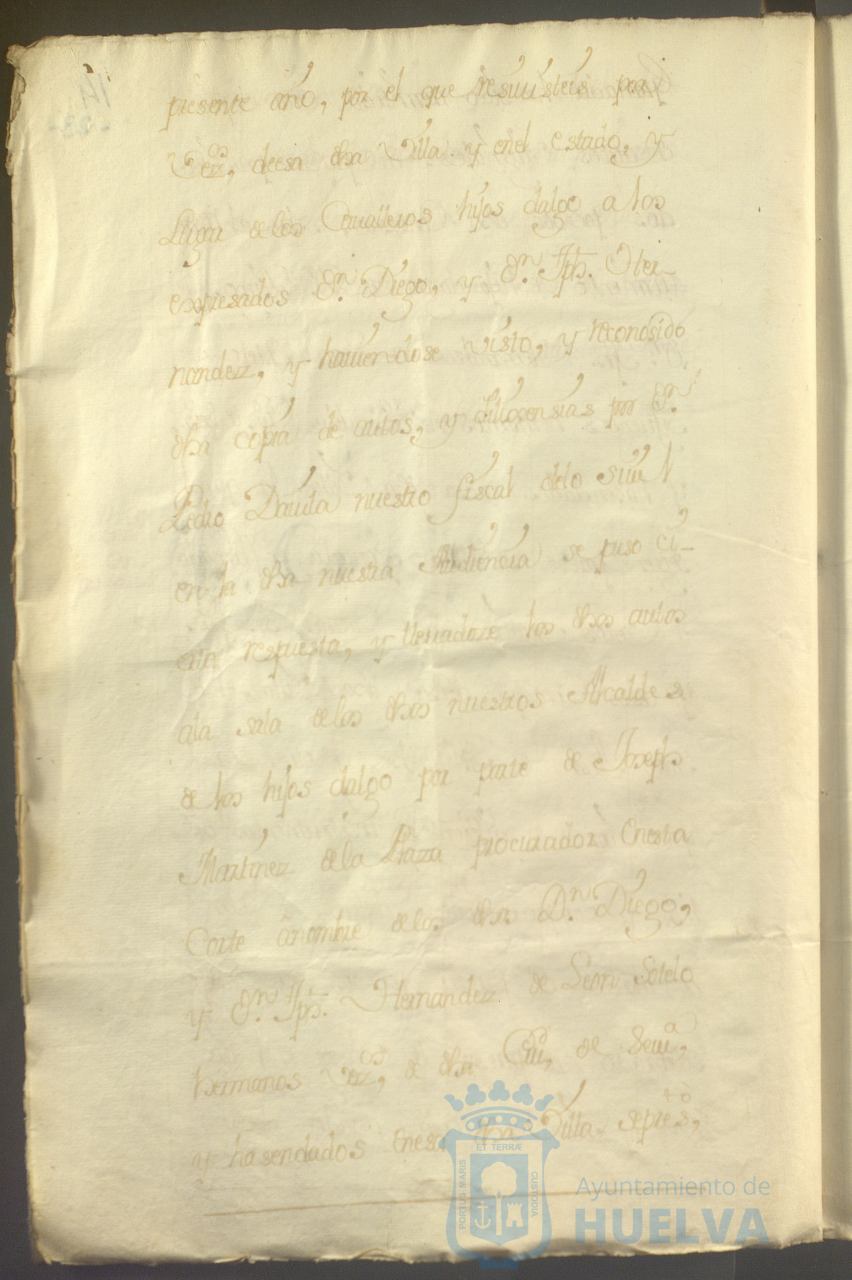 presente año, por el que resiuisteis por
Vez.os, deesa dha Villa y enel estado, y
Lugar delos Caualleros hijos dalgo a los
expresados Dn. Diego, y Dn. Jph. Her-
nandez, y hauiendose visto, y reconosido
dha copia de autos, y dilixensias por Dn.
Pedro Dauila nuestro fiscal delo siuil
en la dha nuestra Audiencia se puso ci-
erta respuesta, y lleuadose los dhos autos
ala sala delos dhos nuestros Alcaldes
de los hijos dalgo por parte de Joseph
Martinez dela Plaza procurador Enesta
Corte anombre delos dhos Dn. Diego,
y Dn. Jph. Hernandez de Leon Sotelo
hermanos Vez.os, de dha Ciu, de Seuia,
y hasendados Enesa dha Villa, sepres.to,
ET TERRÆ
PORTUS MARIS
CUSTODIA
Ayuntamiento de
HUELVA